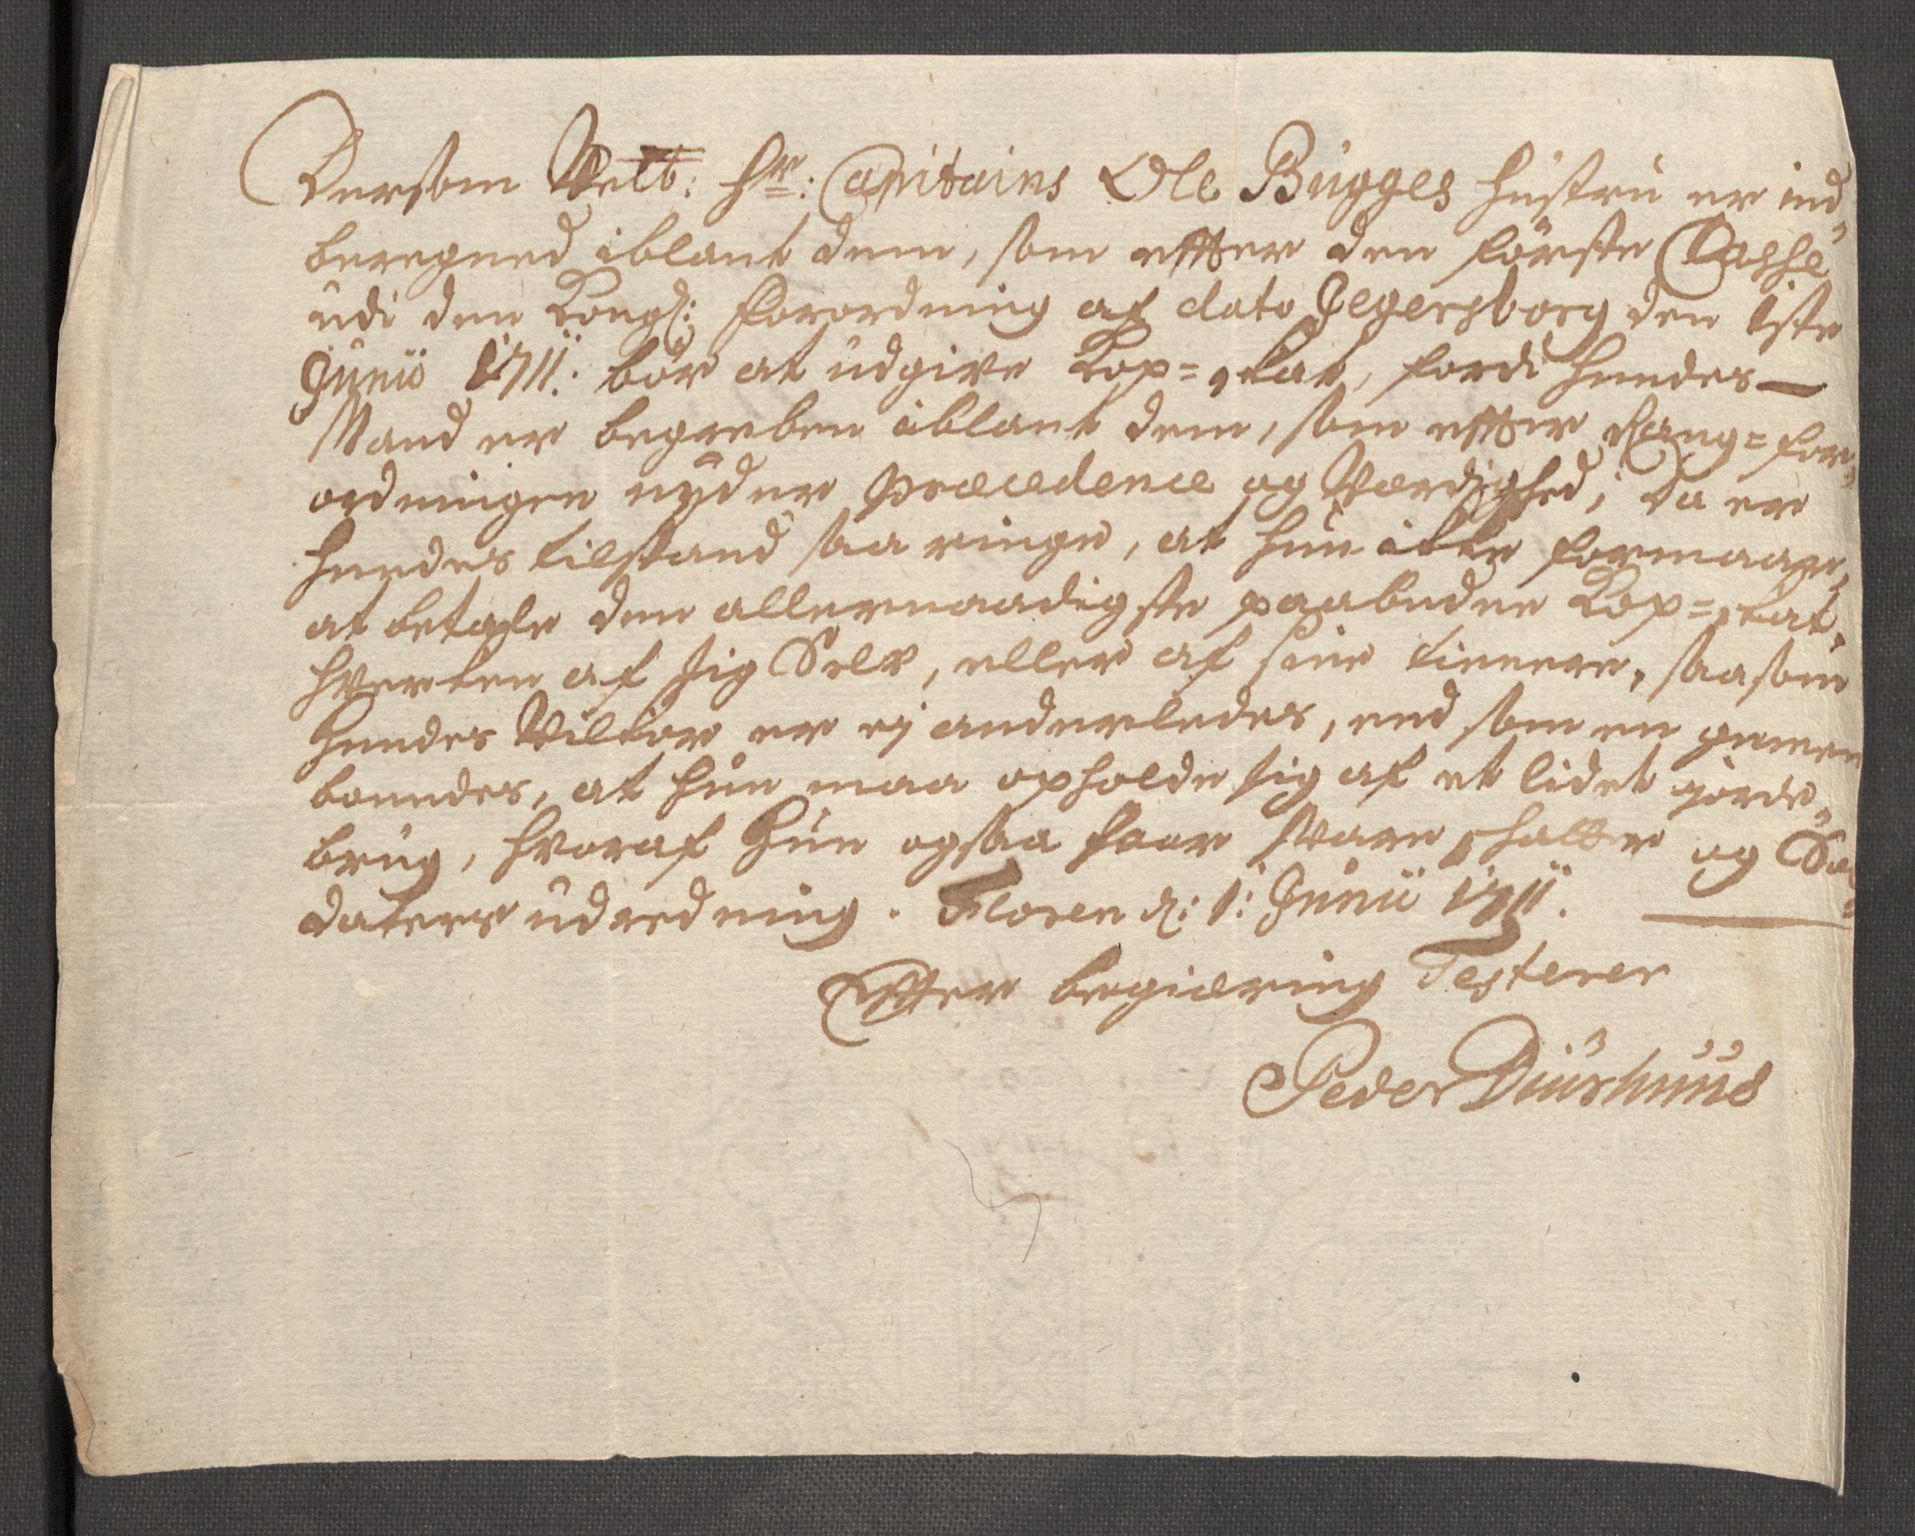 Dersom Velb: Hr: Capitains Ole Bugges Hustru er ind-
beregned iblant dem, som effter den förste Classe
udi den Kongl: Forordning af dato Jegersborg den 1ste
Junii 1711. bör at udgive Kop-skat, fordi hendes
Mand er begreben iblant dem, som effter Rang-for-
ordningen nyder præcedence og Værdighed; Da er
hendes tilstand saa ringe, at hun icke formaaer,
at betale den allernaadigste paabudne Kop-skat,
hverken af sig Selv, eller af sine tienere, saasom
hendes Vilkor er ej anderledes, end som en gemeen
bondes, at hun maa opholde sig af et lidet jorde-
brug, hvoraf hun ogsaa faar svare skatter og Sol-
daters udredning. Floren d: 1: Junii 1711.
Effter begiæring Testerer
Peder Diurhuus